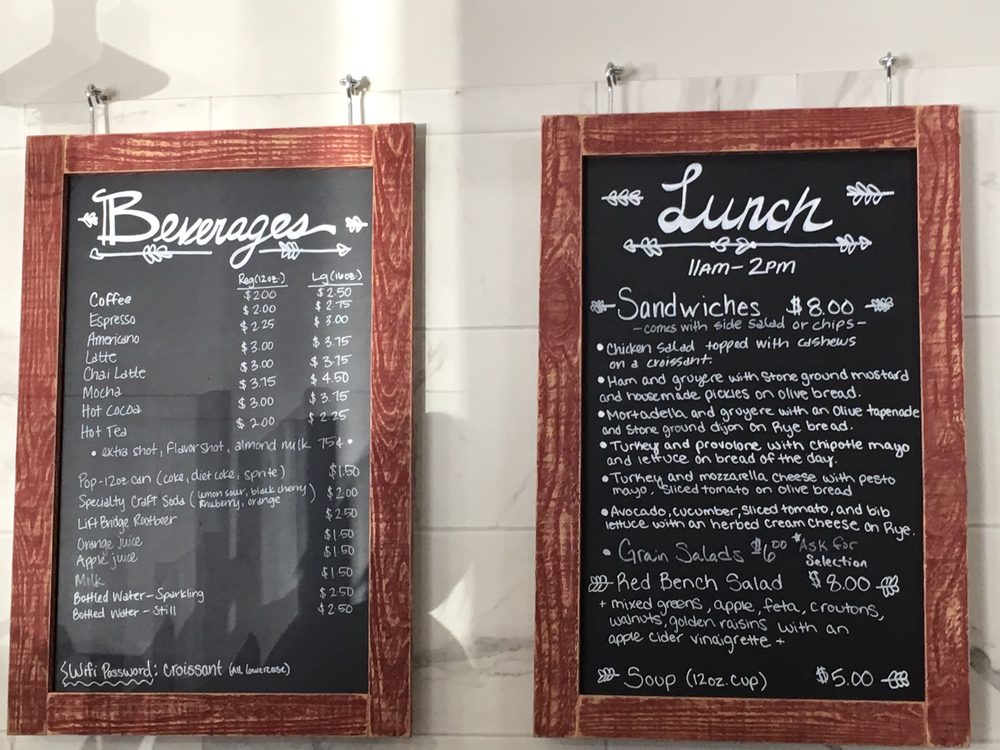 Beverages
Reg (12oz.) Lg (16oz.)
Coffee $2.00 $2.50
Espresso $2.00 $2.75
Americano $2.25 $3.00
Latte $3.00 $3.75
Chai Latte $3.00 $3.75
Mocha $3.75 $4.50
Hot Cocoa $3.00 $3.75
Hot Tea $2.00 $2.25
• extra shot, flavor shot, almond milk 75¢ •
Pop-12oz can (coke, diet coke, sprite) $1.50
Specialty Craft Soda (lemon sour, black cherry $2.00
Rhuberry, orange)
Lift Bridge Rootbeer $2.50
Orange juice $1.50
Apple juice $1.50
Milk $1.50
Bottled Water-Sparkling $2.50
Bottled Water-Still $2.50
Wifi Password: Croissant (All lowercase)
Lunch
11AM-2PM
Sandwiches $8.00
-comes with side salad or chips-
• Chicken salad topped with cashews
on a croissant.
• Ham and gruyere with Stone ground mustard
and housemade pickles on olive bread.
• Mortadella and gruyere with an Olive tapenade
and Stone ground dijon on Rye bread.
• Turkey and provolone, with chipotle mayo
and lettuce on bread of the day.
• Turkey and mozzarella cheese with pesto
mayo, sliced tomato on olive bread
• Avocado, cucumber, sliced tomato, and bib
lettuce with an herbed cream cheese on Rye.
• Grain Salads $6.00 *Ask for
Selection
Red Bench Salad $8.00
+ mixed greens, apple, feta, croutons,
walnuts, golden raisins with an
apple cider vinaigrette +
Soup (12oz. cup) $5.00